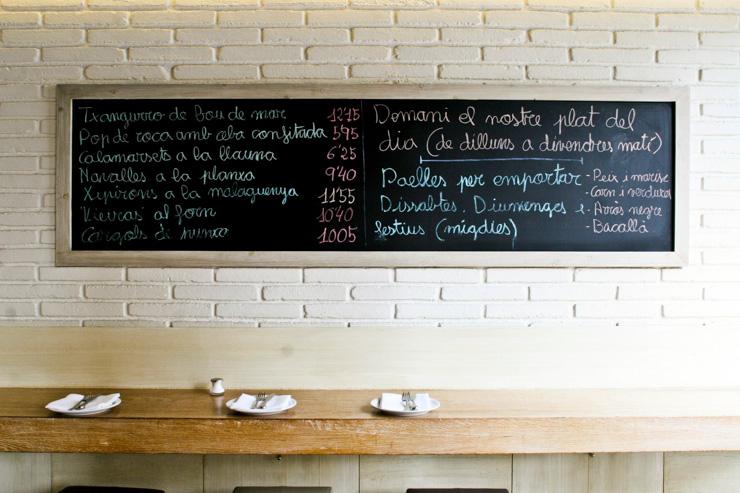 Txangurro de Bou de mar 12'75
Pop de roca amb ceba confitada 5'95
Calamarsets a la llauna 6'25
Navalles a la planxa 9'40
Xipirons a la malaguenya 11'55
Vieiras al forn 10'40
Cargols di punxo 10'05
Demani el nostre plat del
dia (de dilluns a divendres matí)
Paelles per emportar - Peix i marisc
Dissabtes, Diumenges i - Carn i verdures
festius (migdies) - Arròs negre
- Bacallà